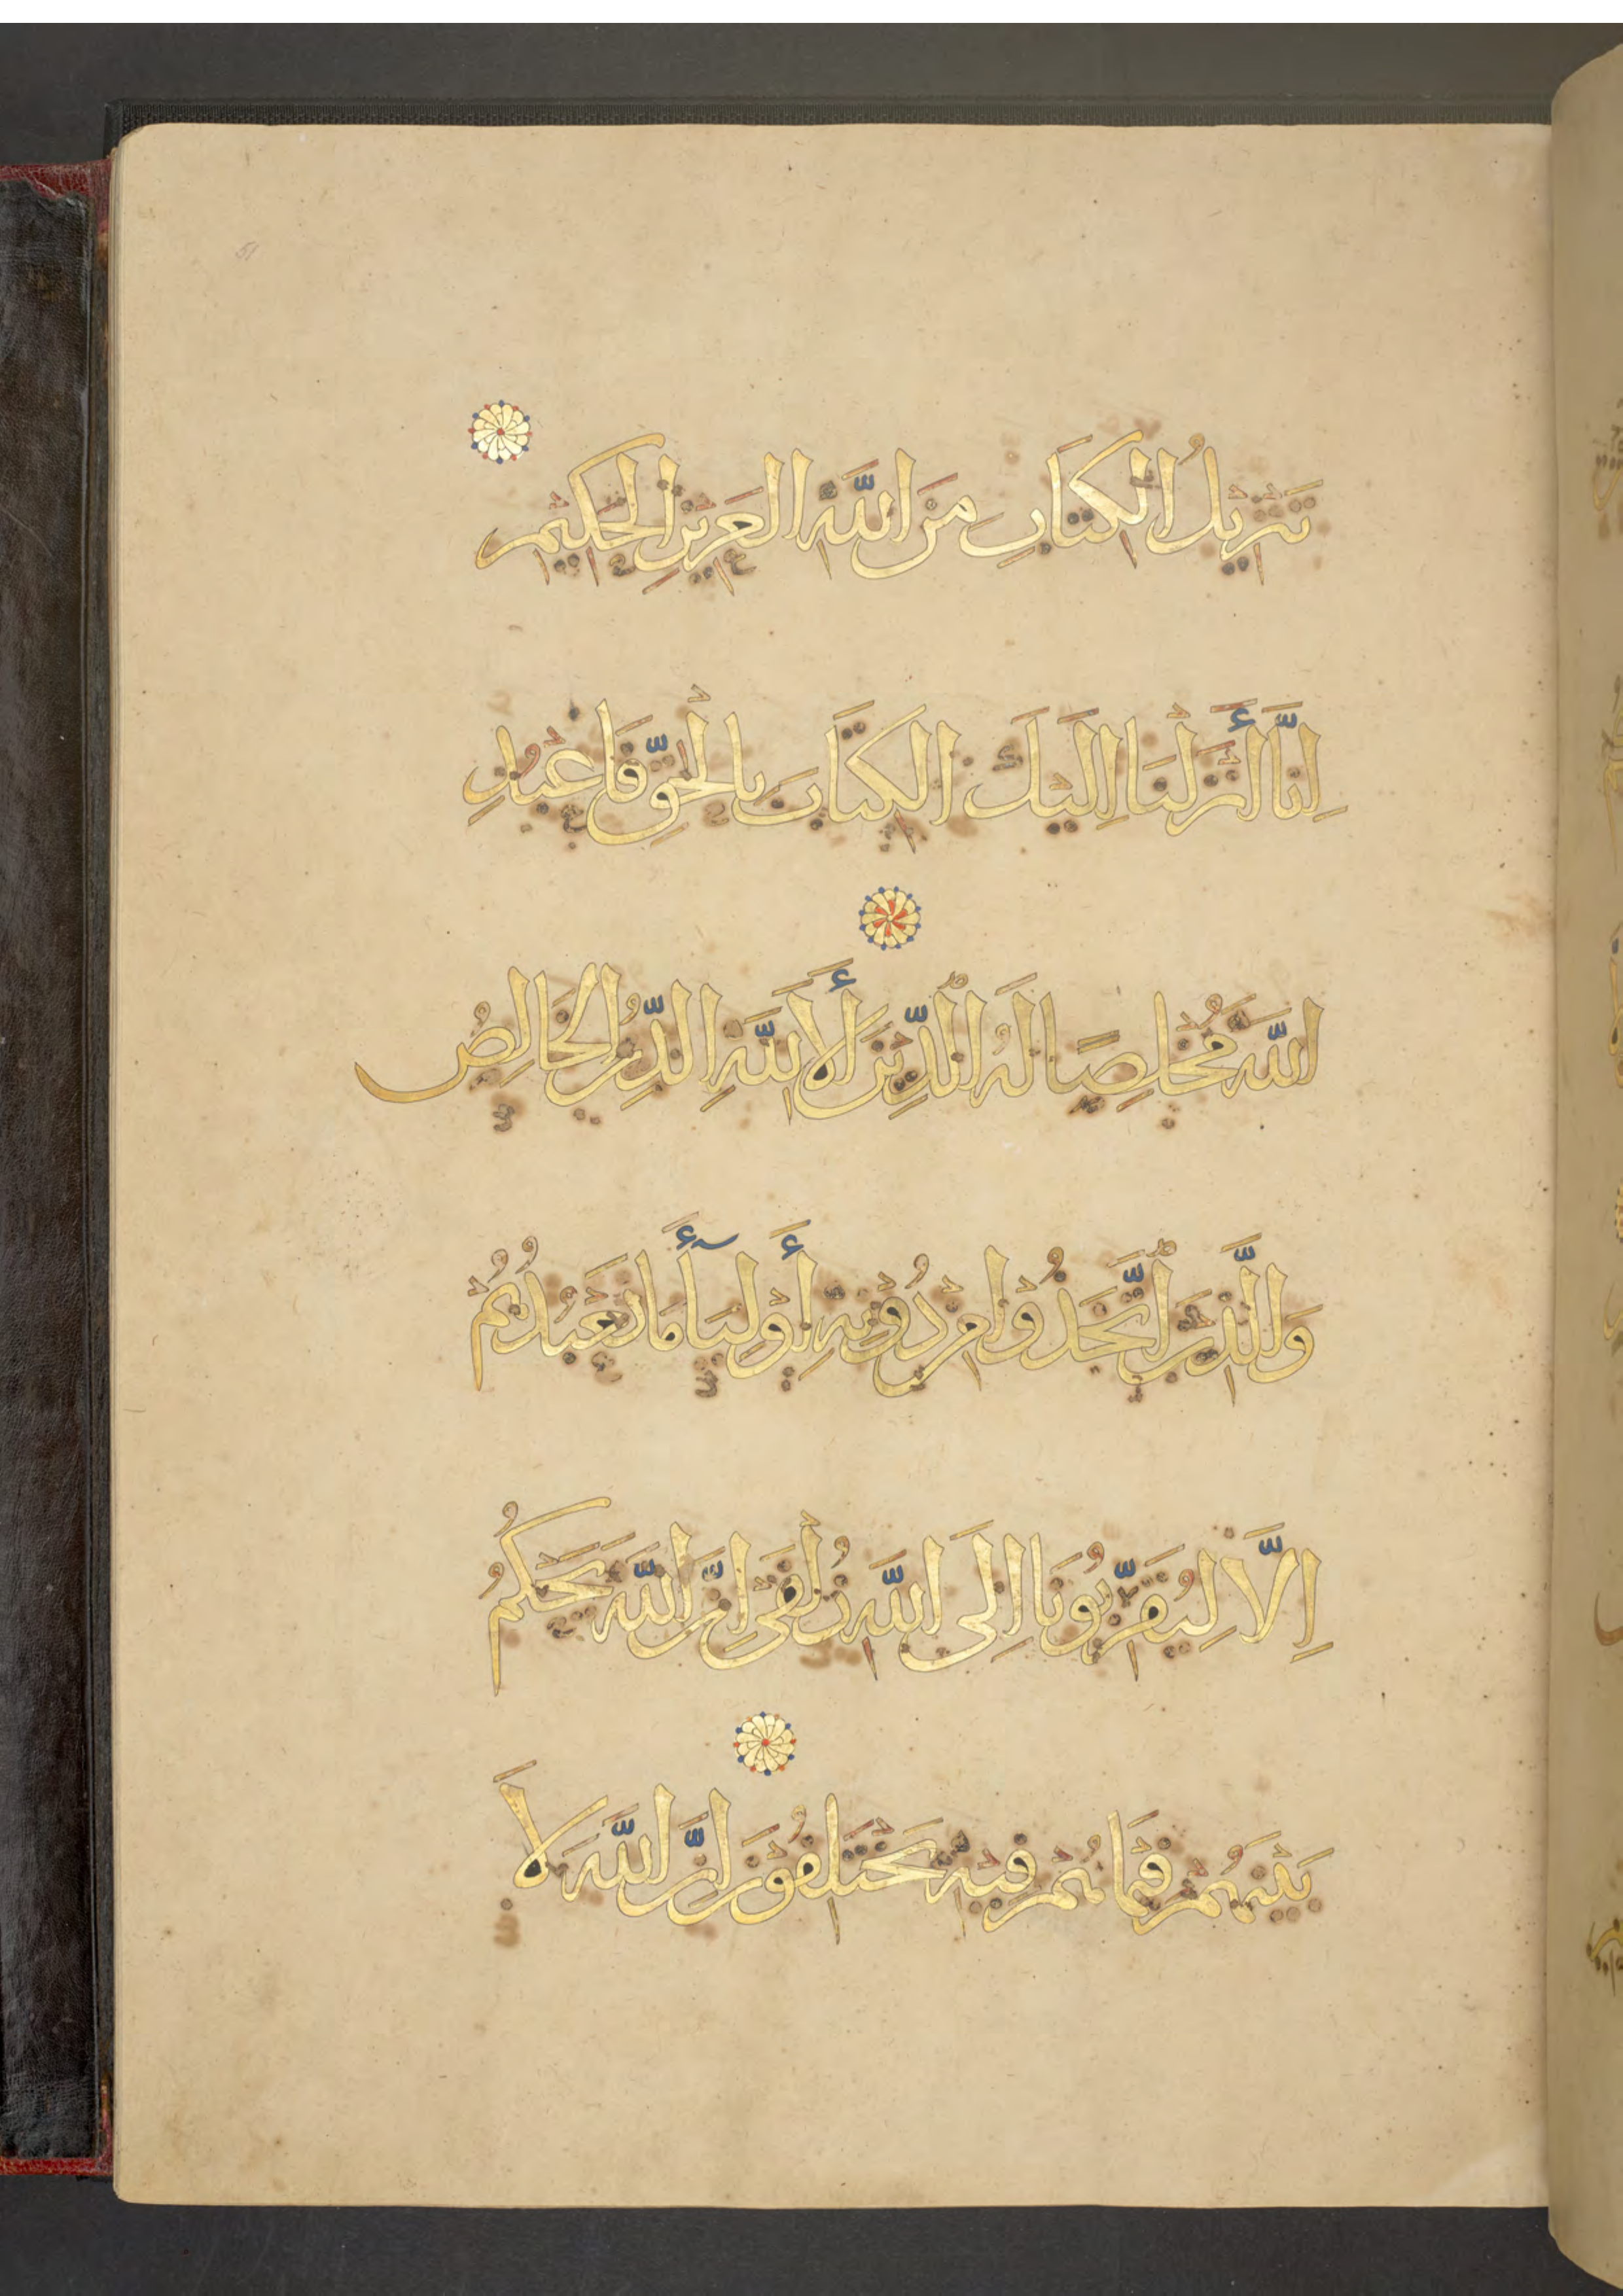 51
تَنْزِيلُ الْكِتَابِ مِنَ اللَّهِ الْعَزِيزِ الْحَكِيمِ
إِنَّا أَنْزَلْنَا إِلَيْكَ الْكِتَابَ بِالْحَقِّ فَاعْبُدِ
اللَّهَ مُخْلِصًا لَهُ الدِّينَ أَلَا لِلَّهِ الدِّينُ الْخَالِصُ
وَالَّذِينَ اتَّخَذُوا مِنْ دُونِهِ أَوْلِيَآءَ مَا نَعْبُدُهُمْ
إِلَّا لِيُقَرِّبُونَا إِلَى اللَّهِ زُلْفَى إِنَّ اللَّهَ يَحْكُمُ
بَيْنَهُمْ فِيمَا هُمْ فِيهِ يَخْتَلِفُونَ إِنَّ اللَّهَ لَا